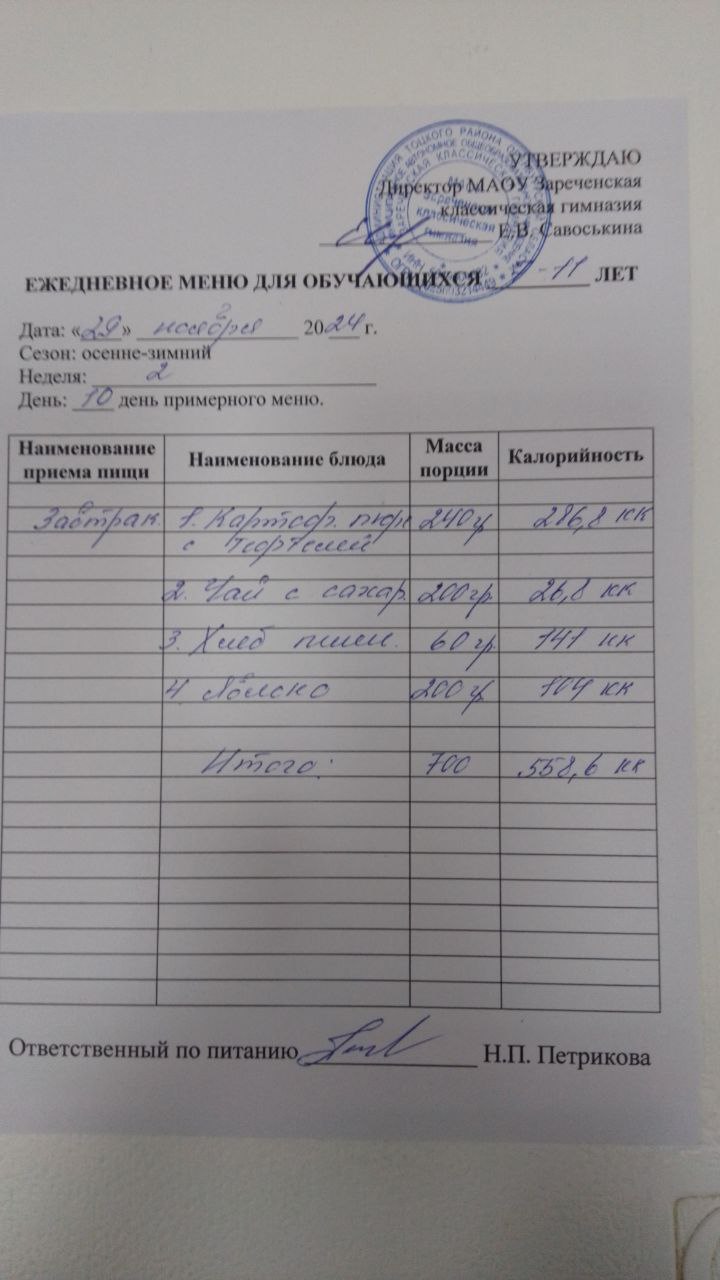 УТВЕРЖДАЮ
Директор МАОУ Зареченская
классическая гимназия
Е.В. Савоськина
ЕЖЕДНЕВНОЕ МЕНЮ ДЛЯ ОБУЧАЮЩИХСЯ -11 ЛЕТ
Дата: «29» ноября 2024 г.
Сезон: осенне-зимний
Неделя: 2
День: 10 день примерного меню.
Наименование приема пищи Наименование блюда Масса порции Калорийность
Завтрак 1. Картоф. пюре 240 гр 286,8 кк
с тефтелей
2. Чай с сахар. 200 гр. 26,8 кк
3. Хлеб пшен. 60 гр. 141 кк
4 Яблоко 200 гр. 104 кк
Итого: 700 558,6 кк
Ответственный по питанию Н.П. Петрикова